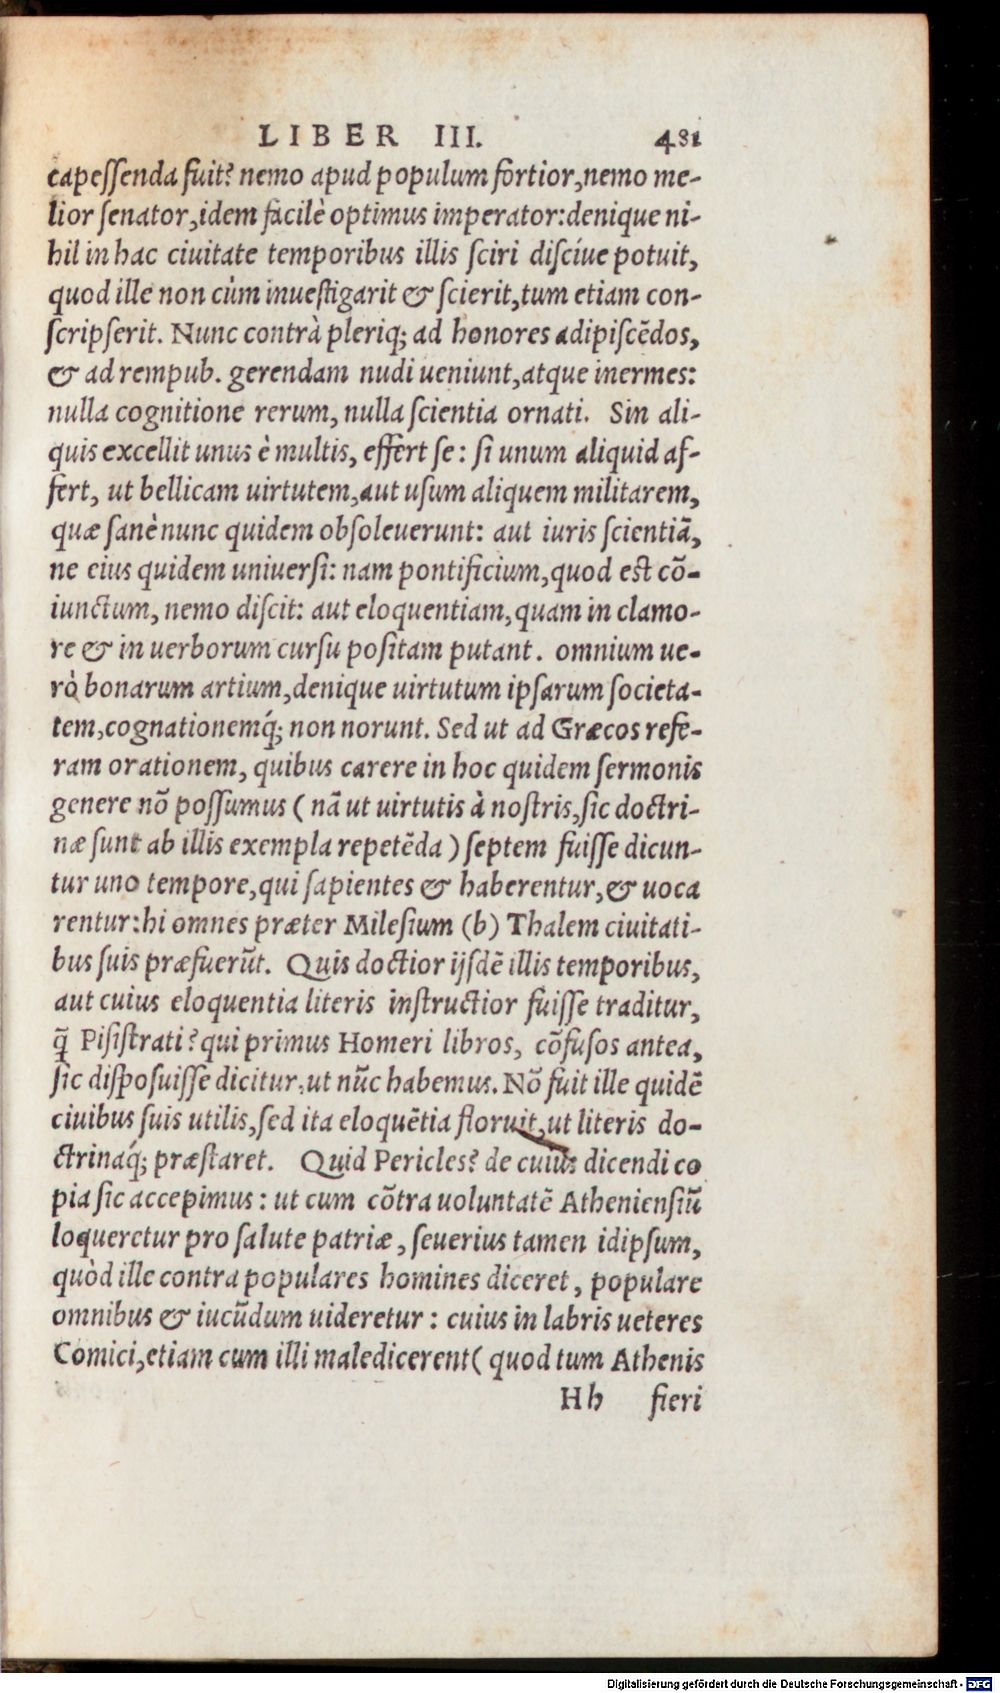 LIBER III. 481
capessenda fuit? nemo apud populum fortior, nemo me-
lior senator, idem facilè optimus imperator: denique ni-
hil in hac ciuitate temporibus illis sciri disciúe potuit,
quod ille non cùm inuestigarit & scierit, tum etiam con-
scripserit. Nunc contrà pleriq; ad honores adipiscēdos,
& ad rempub. gerendam nudi ueniunt, atque inermes:
nulla cognitione rerum, nulla scientia ornati. Sin ali-
quis excellit unus è multis, effert se: si unum aliquid af-
fert, ut bellicam uirtutem, aut usum aliquem militarem,
quæ sanè nunc quidem obsoleuerunt: aut iuris scientiā,
ne eius quidem uniuersi: nam pontificium, quod est cō-
iunctum, nemo discit: aut eloquentiam, quam in clamo-
re & in uerborum cursu positam putant. omnium ue-
rò bonarum artium, denique uirtutum ipsarum societa-
tem, cognationemq́; non norunt. Sed ut ad Græcos refe-
ram orationem, quibus carere in hoc quidem sermonis
genere nō possumus (nā ut uirtutis à nostris, sic doctri-
næ sunt ab illis exempla repetēda) septem fuisse dicun-
tur uno tempore, qui sapientes & haberentur, & uoca
rentur: hi omnes præter Milesium (b) Thalem ciuitati-
bus suis præfuerūt. Quis doctior ijsdē illis temporibus,
aut cuius eloquentia literis instructior fuisse traditur,
q̄ Pisistrati? qui primus Homeri libros, cōfusos antea,
sic disposuisse dicitur, ut nūc habemus. Nō fuit ille quidē
ciuibus suis utilis, sed ita eloquētia floruit, ut literis do-
ctrinaq́; præstaret. Quid Pericles? de cuius dicendi co
pia sic accepimus: ut cum cōtra uoluntatē Atheniensiū
loqueretur pro salute patriæ, seuerius tamen idipsum,
quòd ille contra populares homines diceret, populare
omnibus & iucūdum uideretur: cuius in labris ueteres
Comici, etiam cum illi maledicerent (quod tum Athenis
Hh fieri
Digitalisierung gefördert durch die Deutsche Forschungsgemeinschaft - DFG